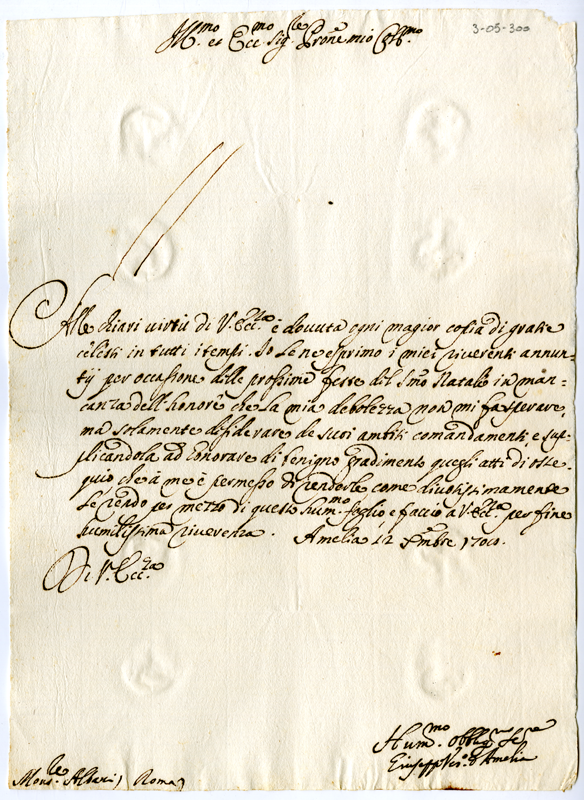 3-05-300
Ill.mo et Ecc.mo Sig.le Prone mio Col.mo
Alle chiari virtù di V. Ecc.za è dovuta ogni magior copia di gratie
celesti in tutti i tempi. Io le ne esprimo i miei riverenti annun-
tij per occasione delle prossime feste del S.mo Natale in man-
canza dell'honore che la mia debolezza non mi fà sperare,
mà solamente desiderare de suoi ambiti comandamenti, e sup-
plicandola ad honorare di benigno gradimento quegli atti di osse-
quio che à me è permesso di renderle come divotissimamente
le rendo per mezzo di questo hum.mo foglio e faccio a V. Ecc.za per fine
humilissima riverenza. Amelia 12 Xmbre 1700.
Di V. Ecc.za
Hum.mo obblig.mo Se.re
Giuseppe Ves.o d'Amelia
Mons.le Altari) Roma)